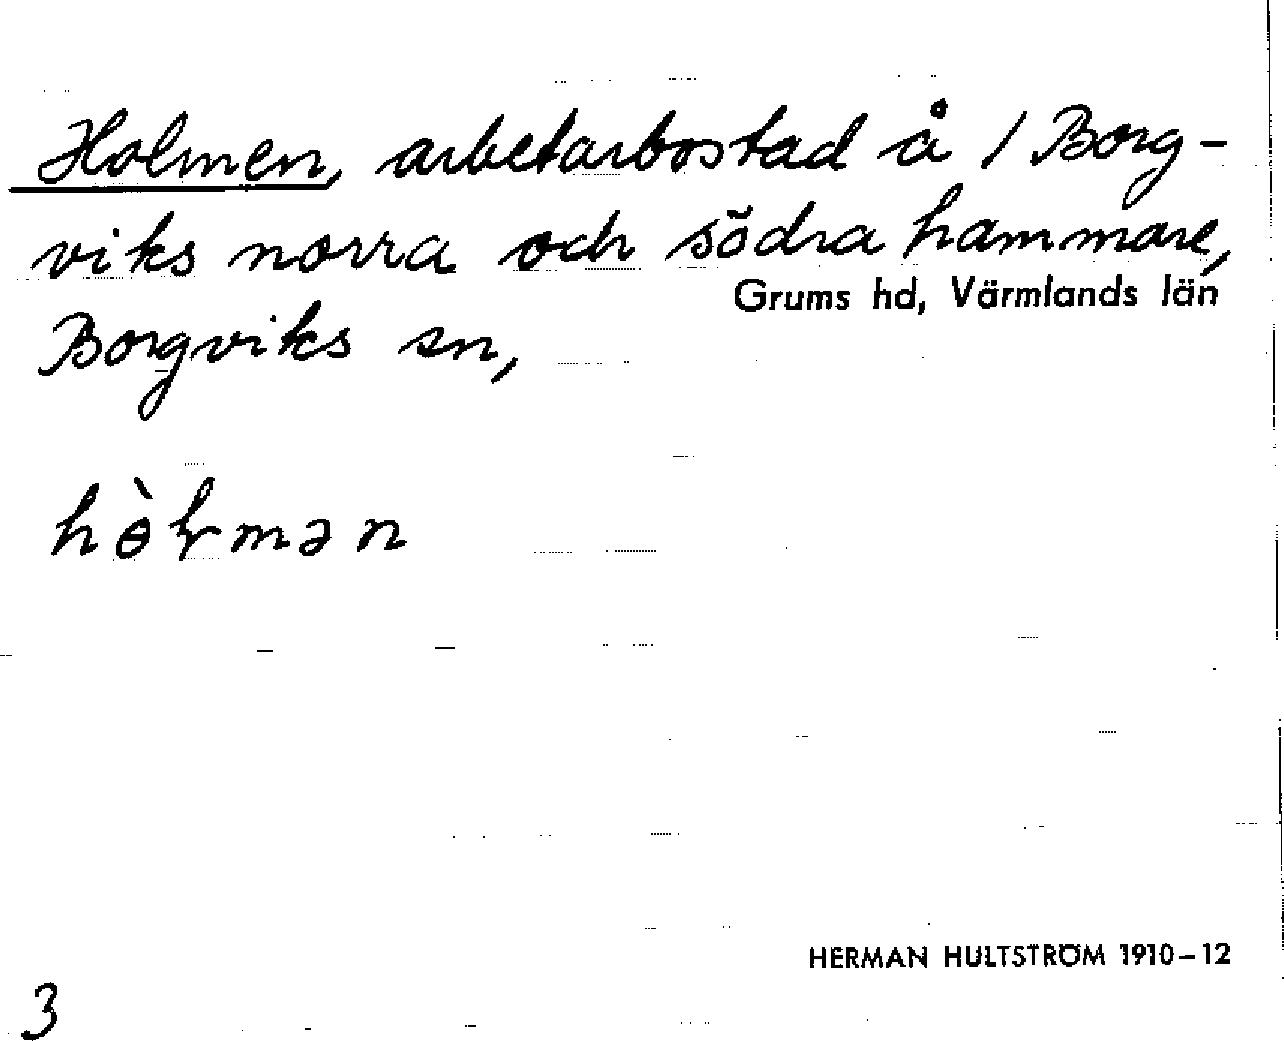 Holmen, arbetarbostad å 1 Borg-
viks norra och södra hammare,
Grums hd, Värmlands län
Borgviks sn,
hɵ̀ɽmən
HERMAN HULTSTRÖM 1910-12
3